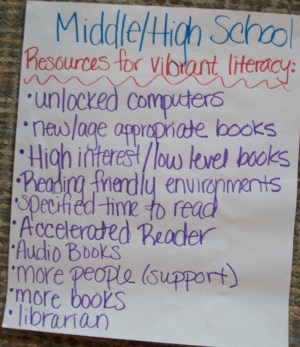 Middle/High School
Resources for vibrant literacy:
•unlocked computers
•new/age appropriate books
•High interest/low level books
•Reading friendly environments
•specified time to read
•Accelerated Reader
•Audio Books
•more people (support)
•more books
•librarian